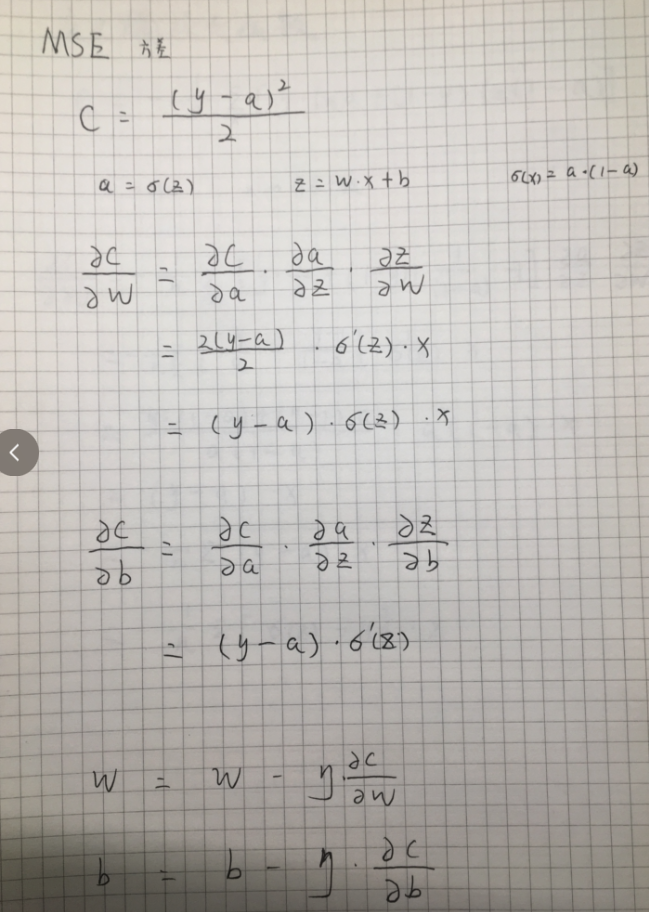 MSE 方差
C = (y - a)² / 2
a = σ(z) z = w·x + b σ(x) = a·(1-a)
∂C/∂w = ∂C/∂a · ∂a/∂z · ∂z/∂w
= 2(y-a)/2 · σ'(z) · x
= (y - a) · σ(z) · x
∂C/∂b = ∂C/∂a · ∂a/∂z · ∂z/∂b
= (y - a) · σ'(z)
w = w - η·∂C/∂w
b = b - η · ∂C/∂b